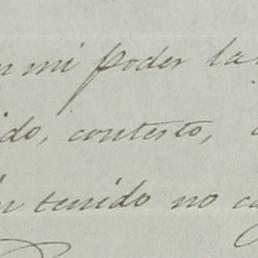 n mi poder la
ido, contesto,
tenido no